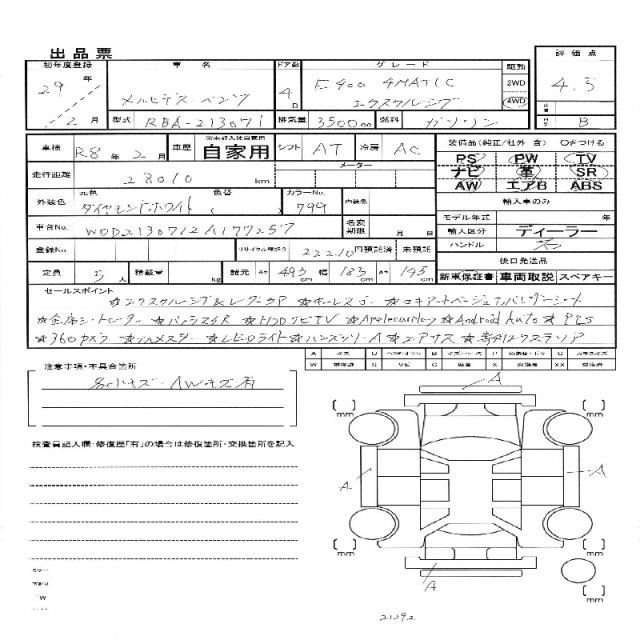 出品票
初年度登録 車名 ドア数 グレード 駆動 評価点
29年 メルセデス・ベンツ 4D E400 4MATIC 2WD 4.5
2月 エクスクルーシブ 4WD
型式 RBA-213071 排気量 3500cc 燃料 ガソリン B
車検 R.8年2月 車歴 自家用 シフト AT 冷房 AC 装備品(純正/社外 含) ○をつける
PS PW TV
走行距離 28010 km メーター ナビ 革 SR
AW エアB ABS
元色 色替 カラーNo. 輸入車のみ
外装色 ダイヤモンドホワイト ( ) 799 内装色 モデル年式 年
車台No. WDD2130712A177257 名変期限 月 日 輸入区分 ディーラー
登録No. リサイクル預託金 22210 円預託済 未預託 ハンドル 右
後日発送品
定員 5人 積載量 kg 諸元 長さ 493cm 幅 185cm 高さ 145cm 新車保証書 車両取説 スペアキー
セールスポイント
★エクスクルーシブ&レーダーSP
★全席シートヒーター ★パノラマSR ★HDDナビTV ★Applecarplay ★Android Auto
★360カメラ ★LEDライト ★ハンズフリーA ★エアサス
注意事項・不具合箇所
各小キズ・AWキズ有
検査員記入欄・修復歴「有」の場合は修復箇所・交換箇所を記入
A
mm mm
A A
mm mm
A